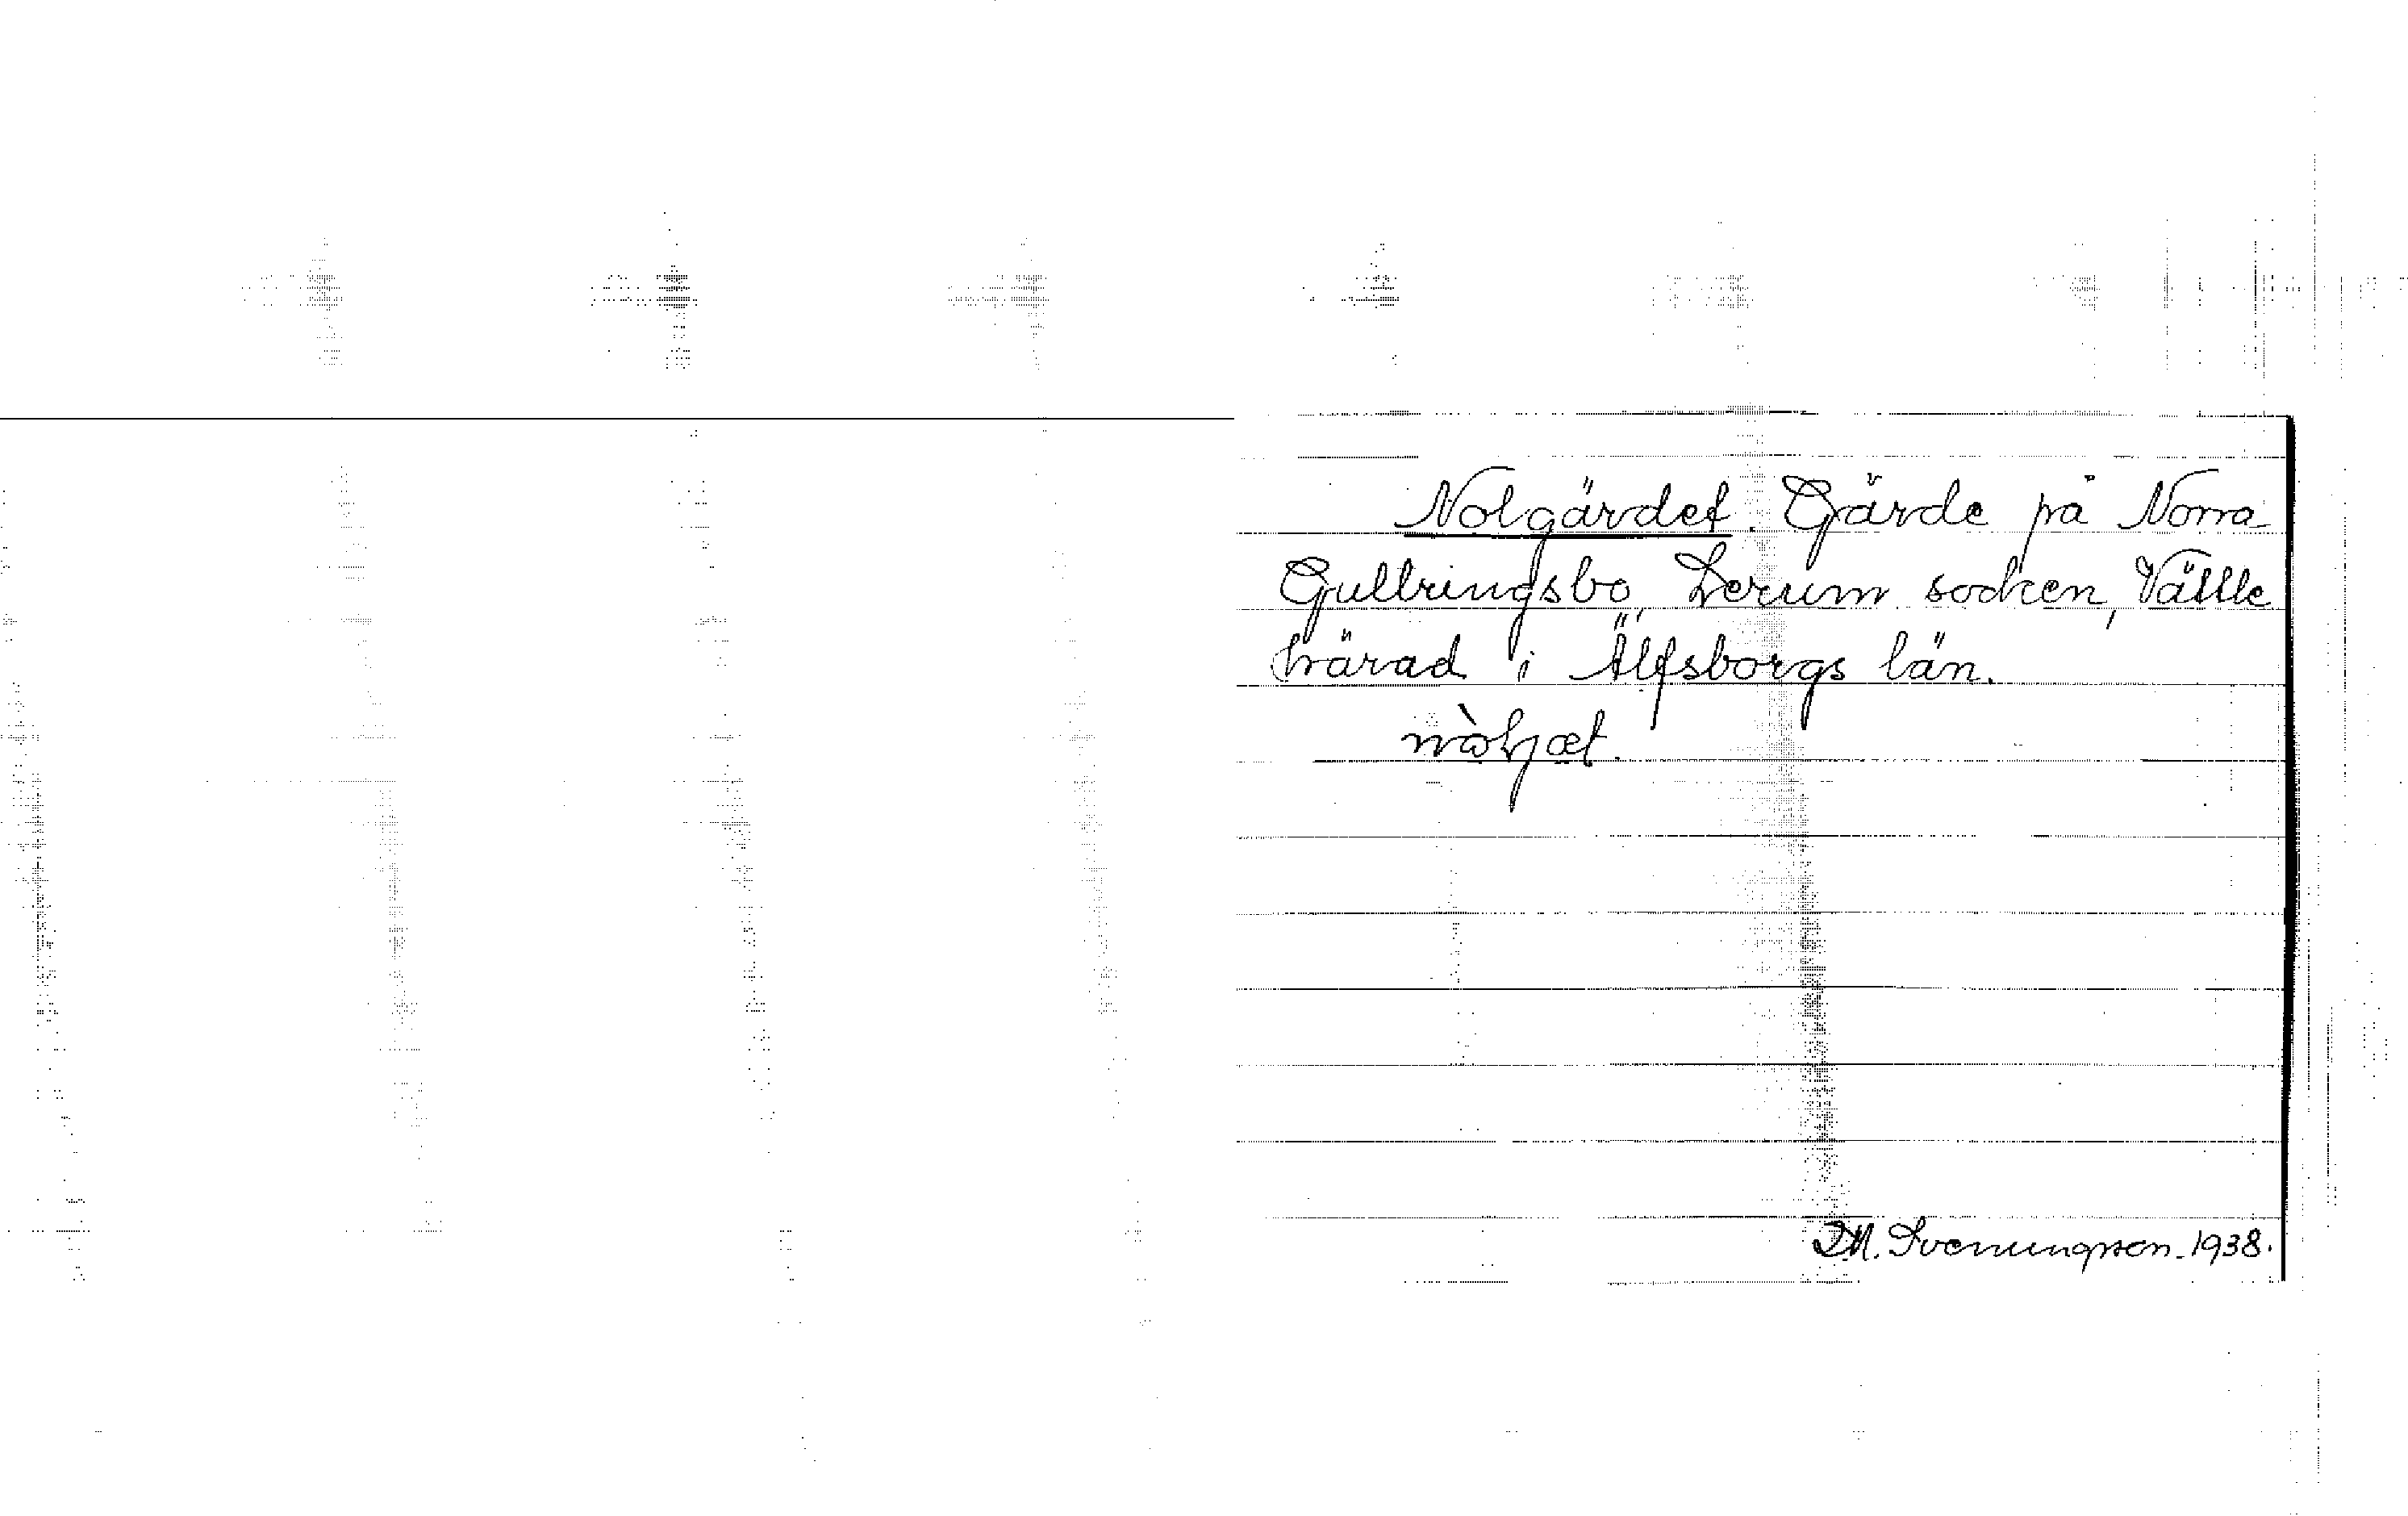 Nolgärdet. Gärde på Norra
Gullringsbo, Lerum socken, Vättle
härad i Älfsborgs län.
M. Svenungsson. 1938.